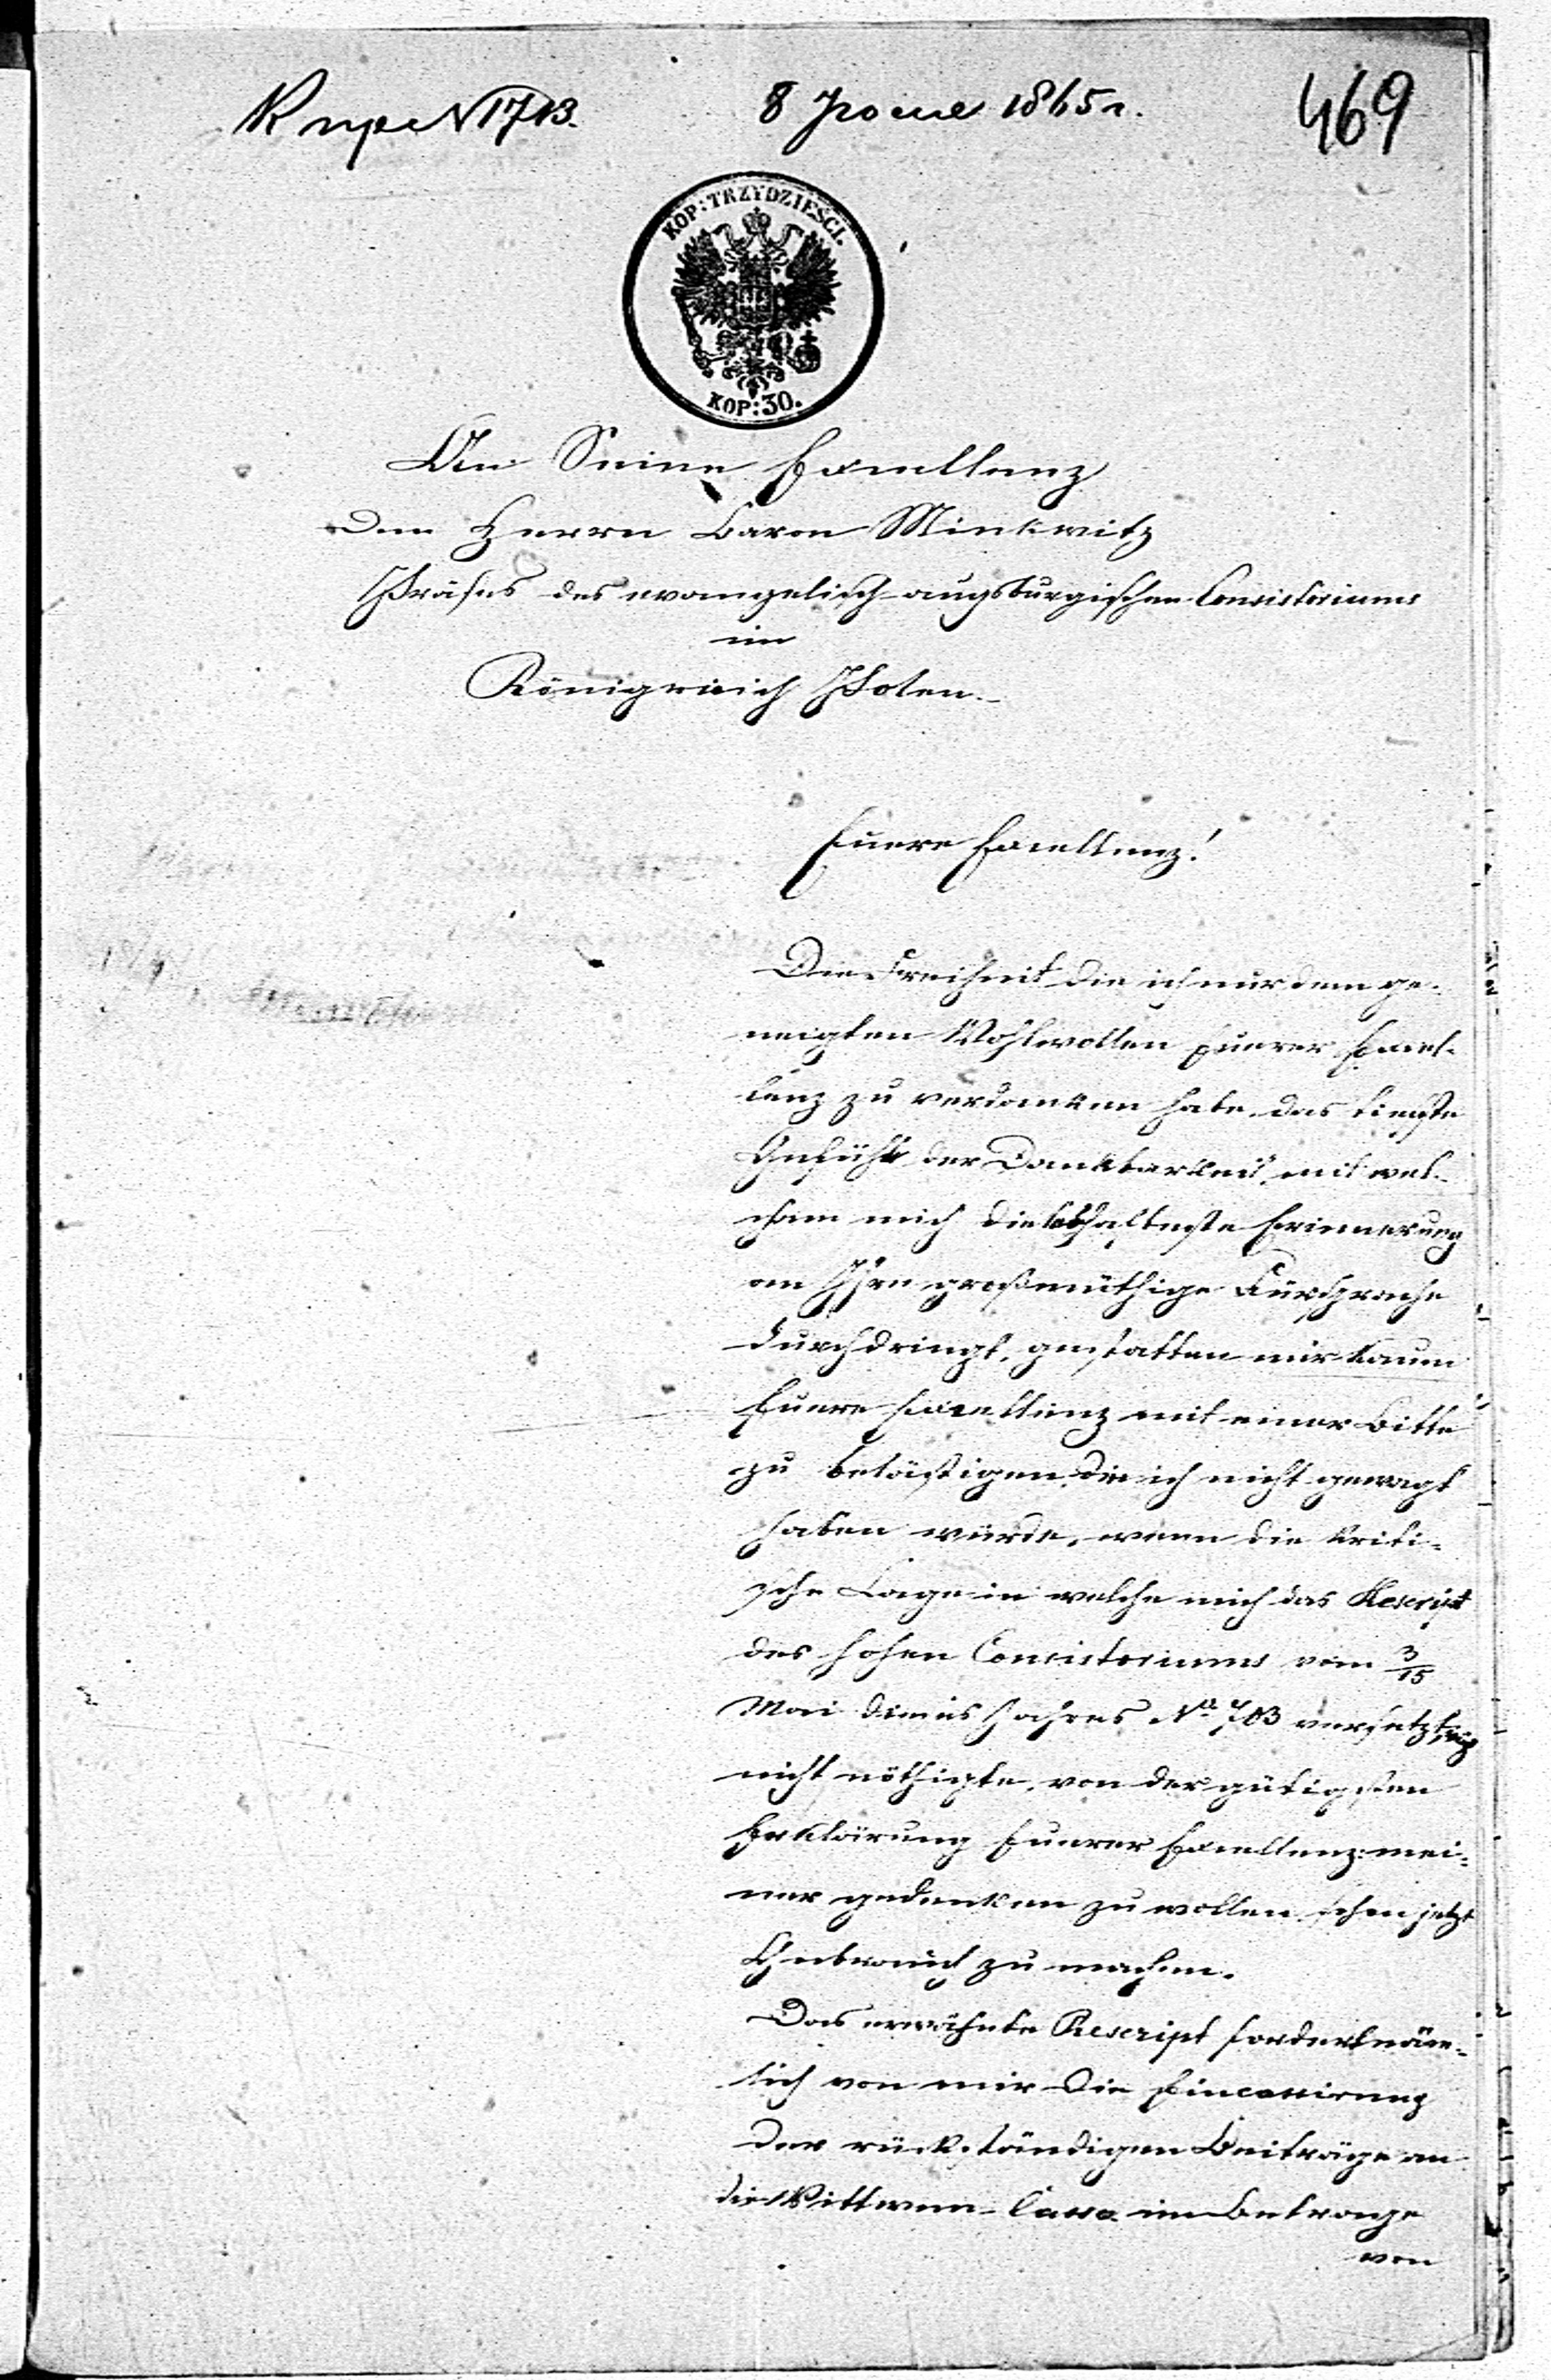 К пр № 1713. 8 Іюня 1865 г. 469
KOP: TRZYDZIEŚCI.
KOP: 30.
An Seine Excellenz
den Herrn Baron Minkwitz
Präses des evangelisch-augsburgischen Consistoriums
im
Königreich Polen.
Euere Excellenz!
Die Freiheit die ich nur dem ge-
neigten Wohlwollen Euerer Excel-
lenz zu verdanken habe, das tiefste
Gefühl der Dankbarkeit, mit wel-
chem mich die lebhafteste Erinnerung
an Ihre großmüthige Fürsprache
durchdringt, gestatten mir kaum
Euere Excellenz mit einer Bitte
zu belästigen, die ich nicht gewagt
haben würde, wenn die kriti-
sche Lage in welche mich das Rescript
des hohen Consistoriums vom 3/15
Mai dieses Jahres No 703 versetzt, mich
nicht nöthigte, von der gütigsten
Erklärung Euerer Excellenz: mei-
ner gedenken zu wollen, schon jetzt
Gebrauch zu machen.
Das erwähnte Rescript fordert näm-
lich von mir die Eincassirung
der rückständigen Beiträge an
die Wittwen-Cassa im Betrage
von